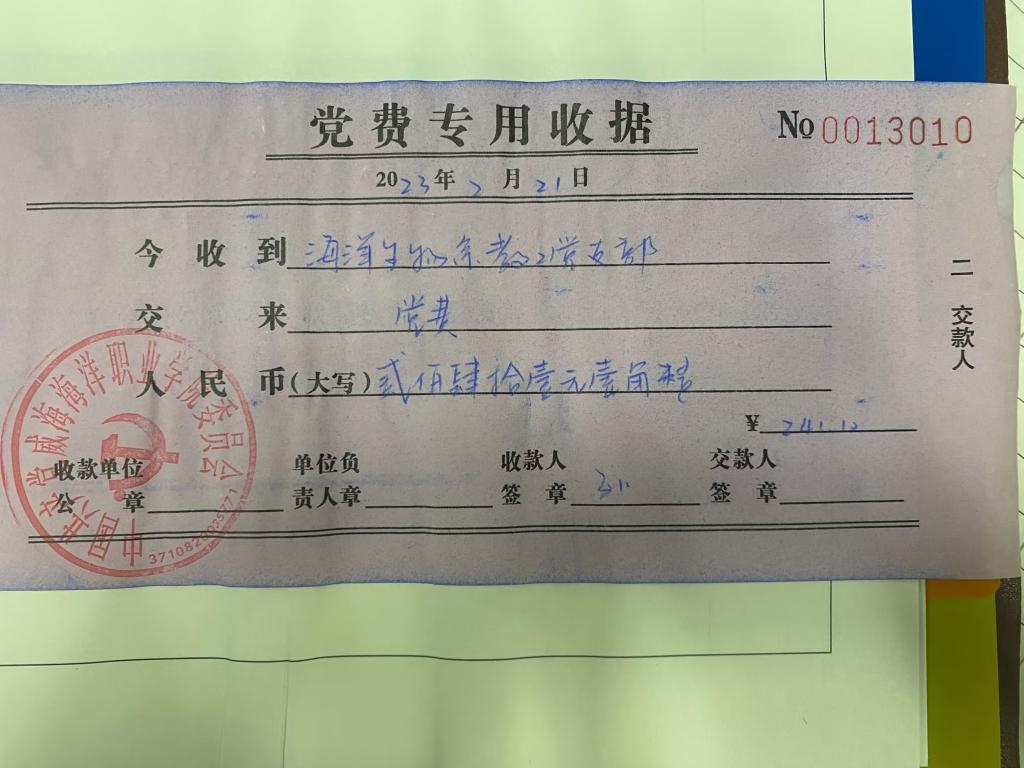 党费专用收据
No 0013010
2023年2月21日
今收到 海洋生物系教工党支部
交来 党费
人民币(大写) 贰佰肆拾壹元壹角整
¥ 241.10
收款单位公章 单位负责人章 收款人签章 交款人签章
二 交款人
中国共产党威海海洋职业学院委员会
3710820035771